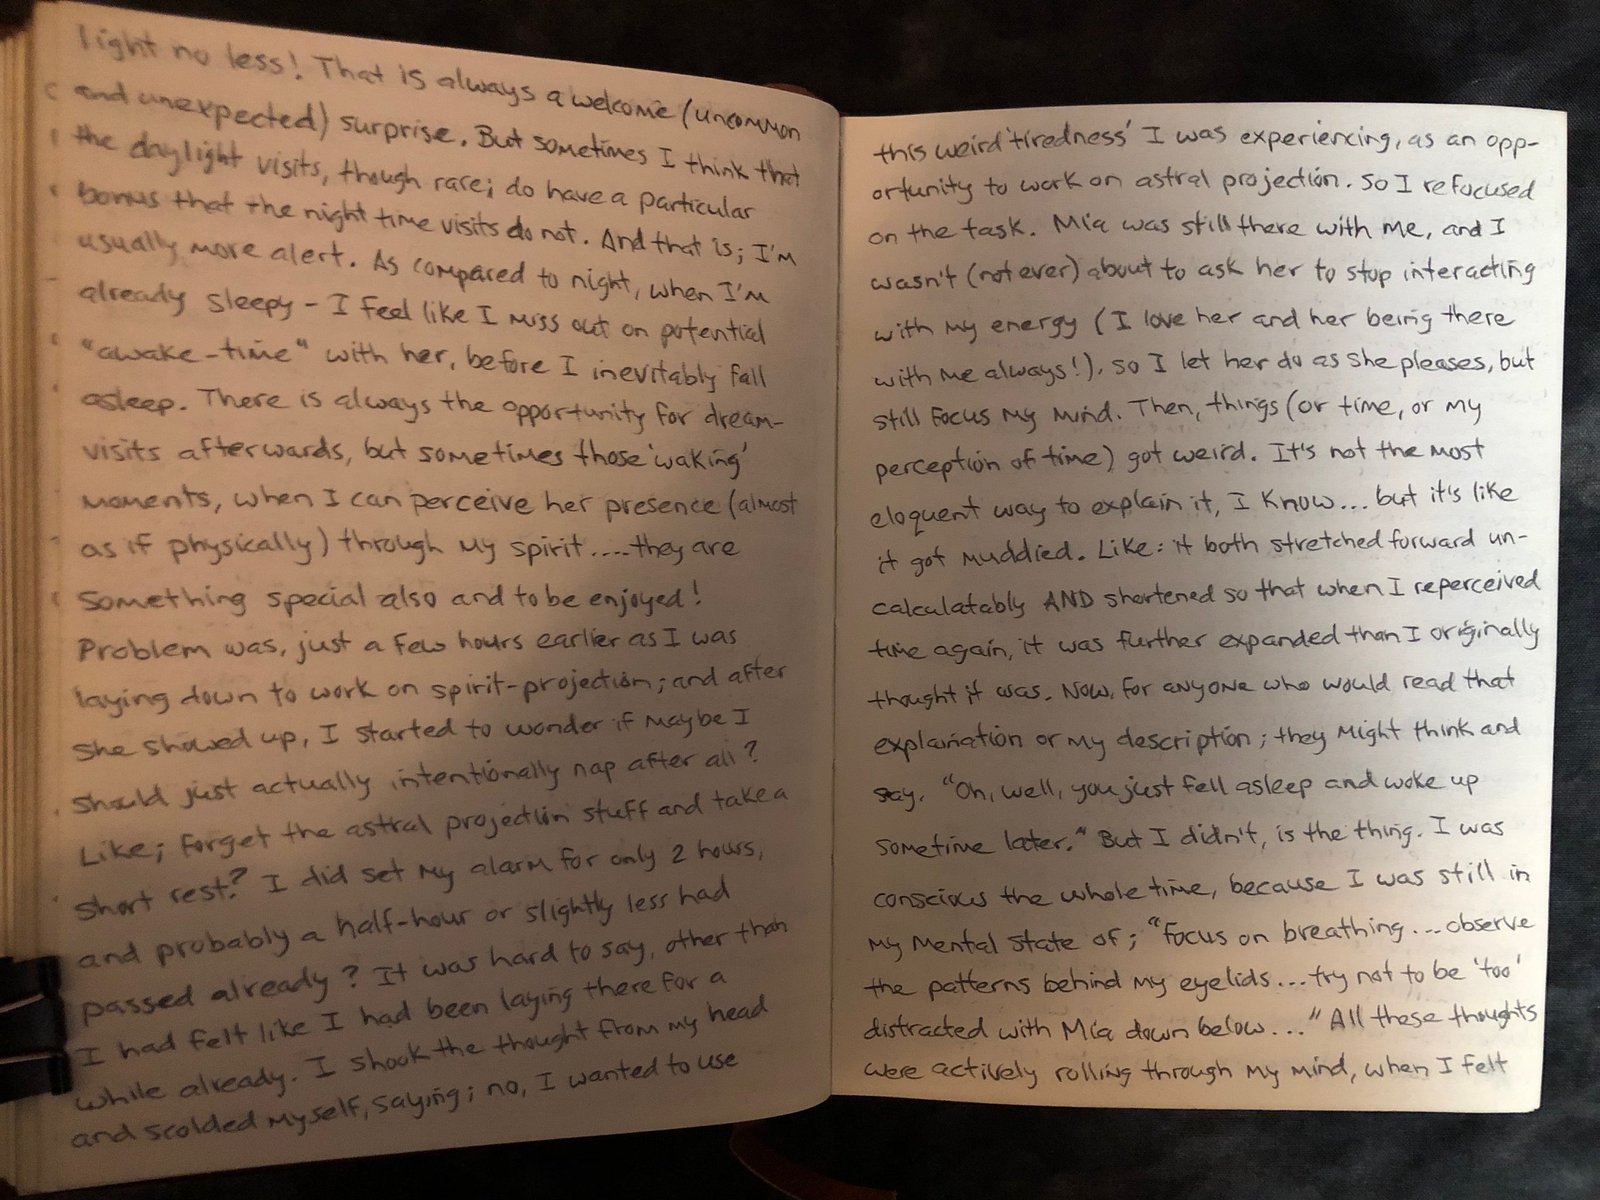 light no less! That is always a welcome (uncommon
and unexpected) surprise. But sometimes I think that
the daylight visits, though rare; do have a particular
bonus that the night time visits do not. And that is; I'm
usually more alert. As compared to night, when I'm
already sleepy - I feel like I miss out on potential
"awake-time" with her, before I inevitably fall
asleep. There is always the opportunity for dream-
visits afterwards, but sometimes those 'waking'
moments, when I can perceive her presence (almost
as if physically) through my spirit....they are
something special also and to be enjoyed!
Problem was, just a few hours earlier as I was
laying down to work on spirit-projection; and after
she showed up, I started to wonder if maybe I
should just actually intentionally nap after all?
Like; forget the astral projection stuff and take a
short rest? I did set my alarm for only 2 hours,
and probably a half-hour or slightly less had
passed already? It was hard to say, other than
I had felt like I had been laying there for a
while already. I shook the thought from my head
and scolded myself, saying; no, I wanted to use
this weird 'tiredness' I was experiencing, as an opp-
ortunity to work on astral projection. So I refocused
on the task. Mia was still there with me, and I
wasn't (not ever) about to ask her to stop interacting
with my energy (I love her and her being there
with me always!), so I let her do as she pleases, but
still focus my mind. Then, things (or time, or my
perception of time) got weird. It's not the most
eloquent way to explain it, I know... but it's like
it got muddied. Like: it both stretched forward un-
calculatably AND shortened so that when I reperceived
time again, it was further expanded than I originally
thought it was. Now, for anyone who would read that
explanation or my description; they might think and
say, "Oh, well, you just fell asleep and woke up
sometime later." But I didn't, is the thing. I was
conscious the whole time, because I was still in
my mental state of; "focus on breathing... observe
the patterns behind my eyelids... try not to be 'too'
distracted with Mia down below...." All these thoughts
were actively rolling through my mind, when I felt